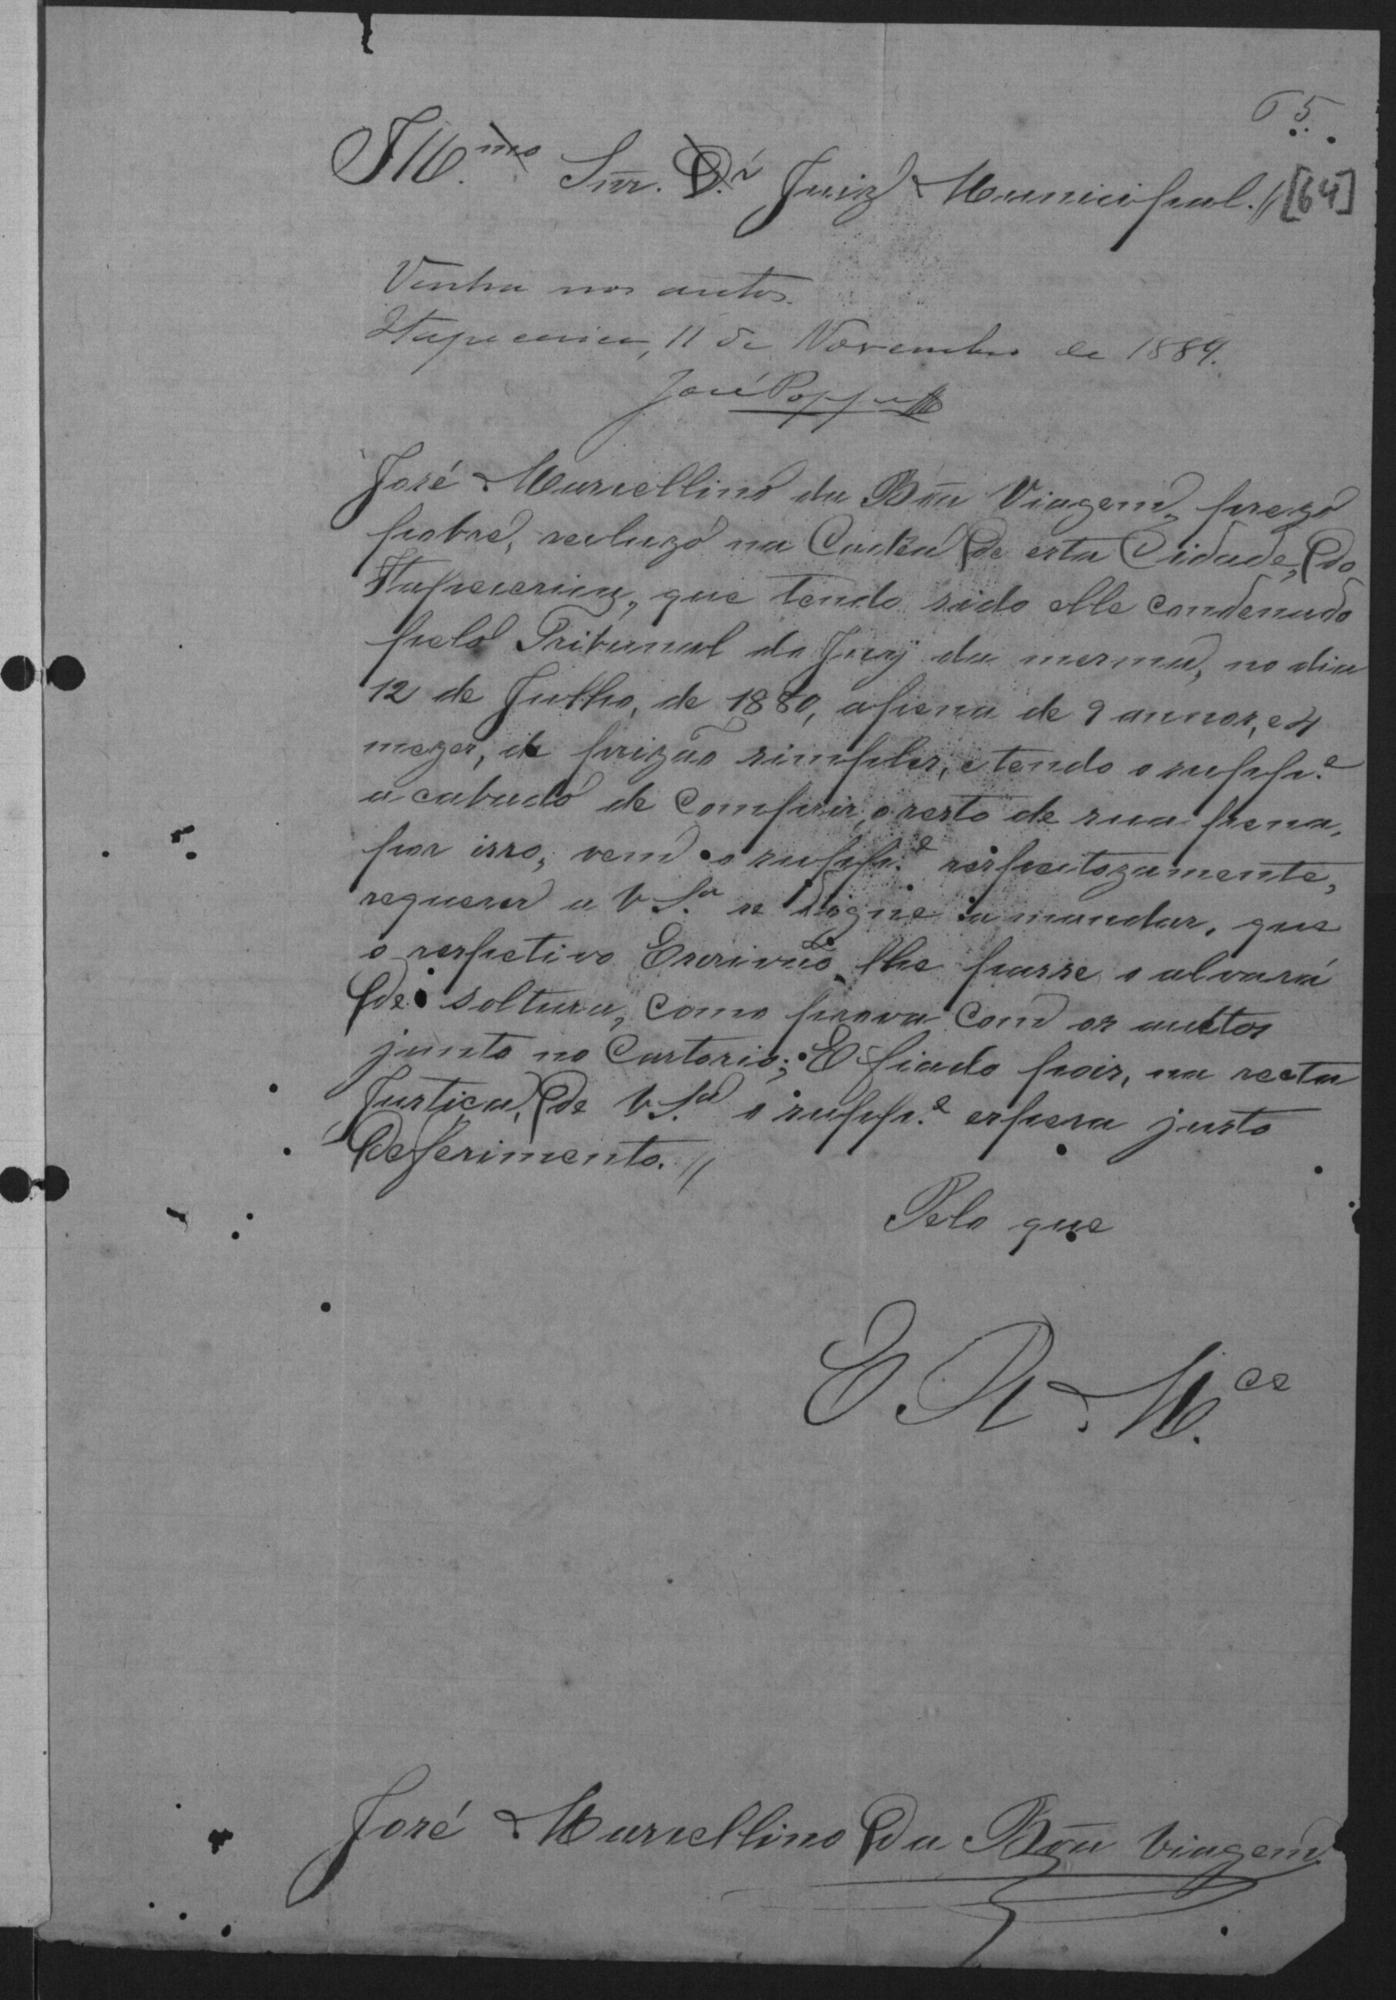 65
Illmo Snr. Dr Juiz Municipal.// [64]
Venha nos autos.
Itapecerica, 11 de Novembro de 1889.
José
José Marcellino da Bôa Viagem, prezo
pobre, recluzo na Cadea de esta Cidade, do
Itapecerica, que tendo sido elle condenado
pelo Tribunal do Jury da mesma, no dia
12 de Julho, de 1880, a pena de 9 annos, e 4
mezes, de prizão simples, e tendo o suppe.
acabado de comprir, o resto de sua pena,
por isso, vem o suppe. respeitozamente,
requerer a V Sa. se digne a mandar, que
o respetivo Escrivão, lhe passe o alvará
de soltura, como prova com os auttos
junto no Cartorio; E fiado pois, na recta
Justiça, de V Sa. o suppe. espera justo
Deferimento.//
Pelo que
E. R. M.ce
José Marcellino da Bôa Viagem